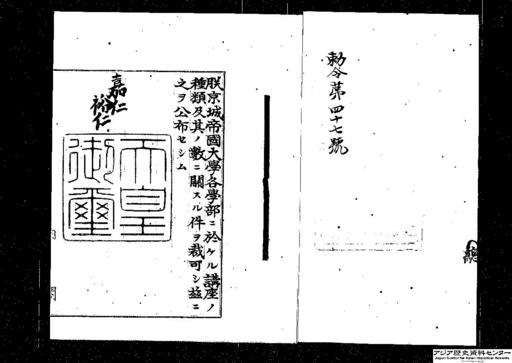 勅令第四十七號
朕京城帝國大學各學部ニ於ケル講座ノ
種類及其ノ數ニ關スル件ヲ裁可シ茲ニ
之ヲ公布セシム
嘉仁
裕仁
天皇
御璽
アジア歴史資料センター
Japan Center for Asian Historical Records